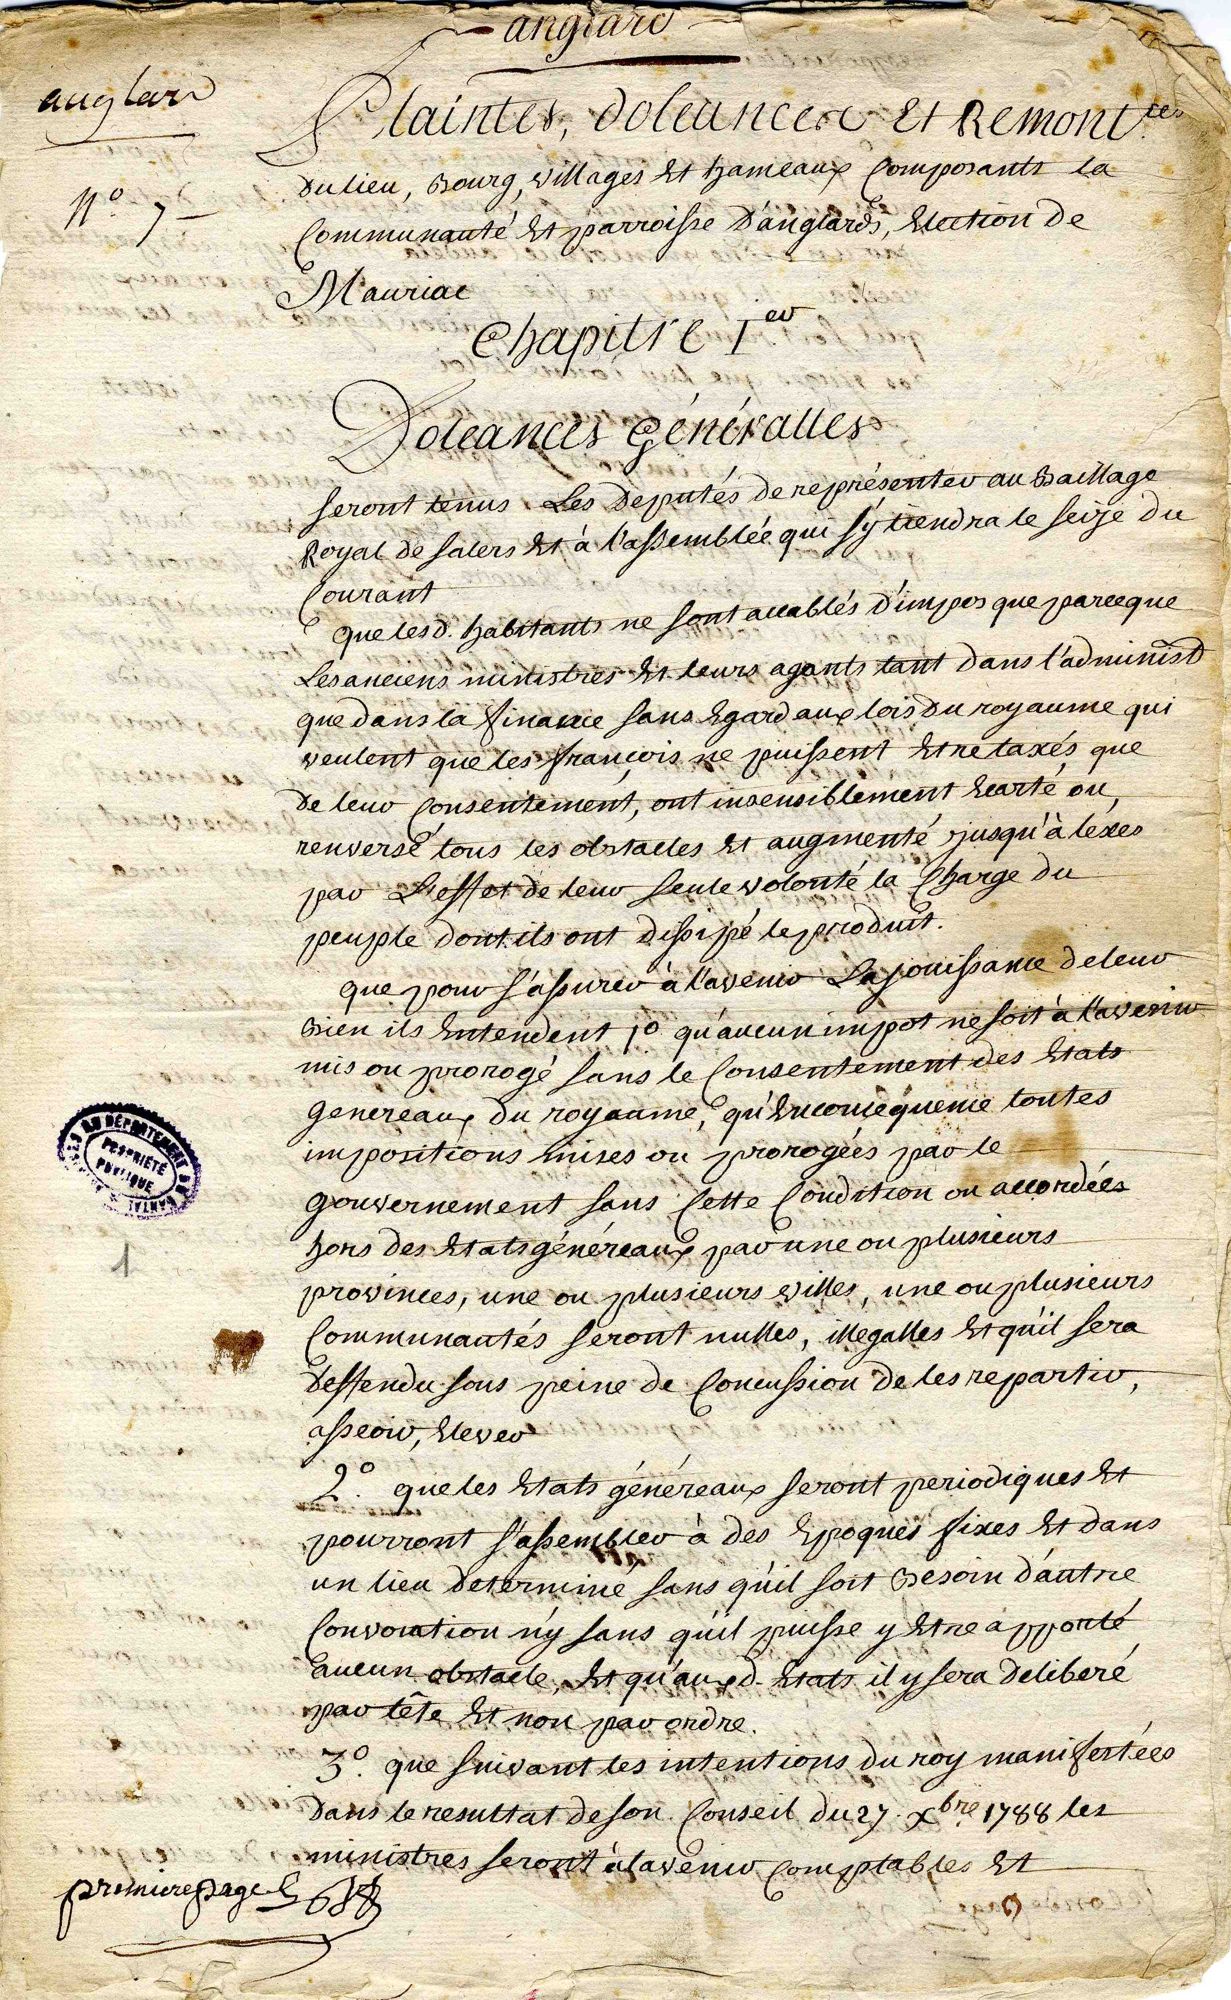 anglard
anglard
Plaintes, doleances Et Remont.ces
N.o 7
Du lieu, Bourg, villages Et hameaux Composants la
Communauté Et parroisse D'anglards, Election de
Mauriac
Chapitre I.er
Doleances généralles
seront tenus Les Deputés de représenter au Baillage
Royal de salers Et à l'assemblée qui s'y tiendra le seize du
Courant
que lesd. habitants ne sont accablés d'impos que parceque
Les anciens ministres Et leurs agants tant dans l'administ.
que dans la finance sans Egard aux lois du royaume qui
veulent que les françois ne puissent Etre taxés que
De leur Consentement, ont insensiblement Ecarté ou,
renversé tous les obstacles Et augmenté jusqu'à lexes
par L'effet de leur seule volonté la Charge du
peuple dont ils ont dissipé le produit.
que pour s'assurer à l'avenir La jouissance de leur
Bien ils Entendent 1o qu'aucun impot ne soit à l'avenir
mis ou prorogé sans le Consentement des Etats
genereaux du royaume, qu'En consequence toutes
impositions mises ou prorogées par le
gouvernement sans Cette Condition ou accordées
hors des Etats généreaux par une ou plusieurs
provinces, une ou plusieurs villes, une ou plusieurs
Communautés seront nulles, illegalles Et qu'il sera
Deffendu sous peine de Concussion de les repartir,
asseoir, Elever
DU DEPARTEMENT DU CANTAL
PROPRIÉTÉ
PUBLIQUE
1
2.o que les Etats généreaux seront periodiques Et
pourront s'assembler à des Epoques fixes Et dans
un lieu Determiné sans qu'il soit Besoin d'autre
Convocation n'y sans qu'il puisse y Etre apporté
aucun obstacle, Et qu'auxd. Etats il y sera deliberé
par tête Et non par ordre.
3.o que suivant les intentions du roy manifestées
Dans le resultat de son Conseil du 27. Xbre 1788 les
ministres seront à lavenir Comptables Et
premiere page